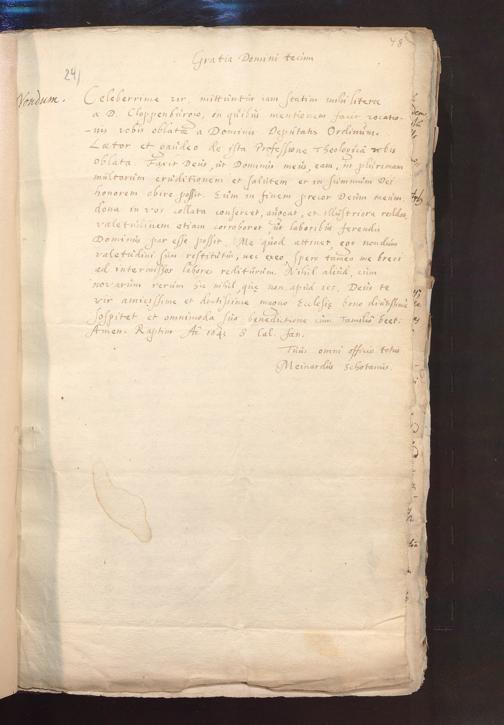 48
Gratia Domini tecum
241
Vondum.
Celeberrime vir, mittuntur iam statim mihi literæ
a D. Cloppenburgio, in quibus mentionem facit vocatio-
nis vobis oblatæ a Dominis Deputatis Ordinum.
Lætor et gaudeo de ista Professione Theologica vobis
oblata. Faxit Deus, ut Dominus meus, eam, in plurimam
multorum eruditionem et salutem et in summum Dei
honorem obire possit. Eum in finem precor Deum meum,
dona in vos collata conservet, augeat, et illustriora reddat
valetudinem etiam corroboret, ut laboribus ferendis
Dominus par esse possit. Me quod attinet, ego nondum
valetudini sum restitutus, nec exeo, spero tamen me brevi
ad intermissos labores rediturum. Nihil aliud, cum
novarum rerum hic nihil, quæ non apud vos. Deus te
vir amicissime et doctissime magno Ecclesiæ bono diutissime
sospitet et omnimoda sua benedictione cum familia beet.
Amen. Raptim Aº 1643 8 Cal. Jan.
Tuus omni officio totus
Meinardus Schotanus.